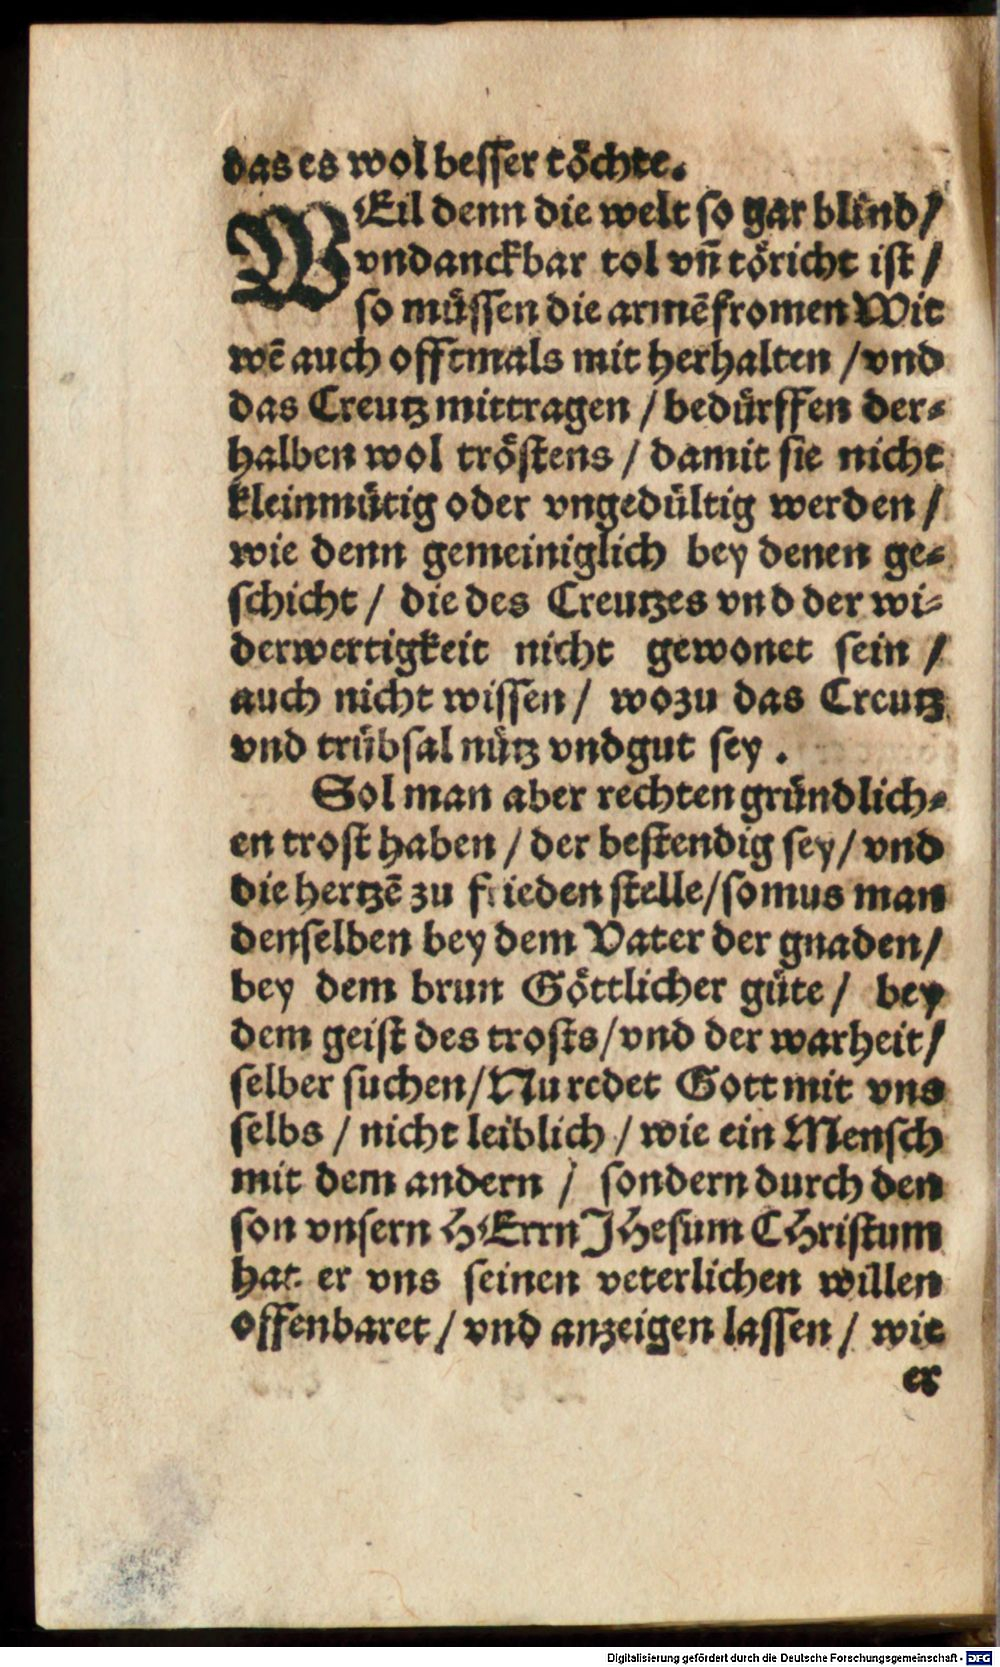 das es wol besser töchte.
WEil denn die welt so gar blind /
vndanckbar tol vn̄ töricht ist /
so müssen die armē fromen Wit
wē auch offtmals mit herhalten / vnd
das Creutz mittragen / bedürffen der⸗
halben wol tröstens / damit sie nicht
kleinmütig oder vngedültig werden /
wie denn gemeiniglich bey denen ge⸗
schicht / die des Creutzes vnd der wi⸗
derwertigkeit nicht gewonet sein /
auch nicht wissen / wozu das Creutz
vnd trübsal nütz vnd gut sey .
Sol man aber rechten gründlich⸗
en trost haben / der bestendig sey / vnd
die hertzē zu frieden stelle / so mus man
denselben bey dem Vater der gnaden /
bey dem brun Göttlicher güte / bey
dem geist des trosts / vnd der warheit /
selber suchen / Nu redet Gott mit vns
selbs / nicht leiblich / wie ein Mensch
mit dem andern / sondern durch den
son vnsern HErrn JHesum CHristum
hat er vns seinen veterlichen willen
offenbaret / vnd anzeigen lassen / wie
er
Digitalisierung gefördert durch die Deutsche Forschungsgemeinschaft - DFG